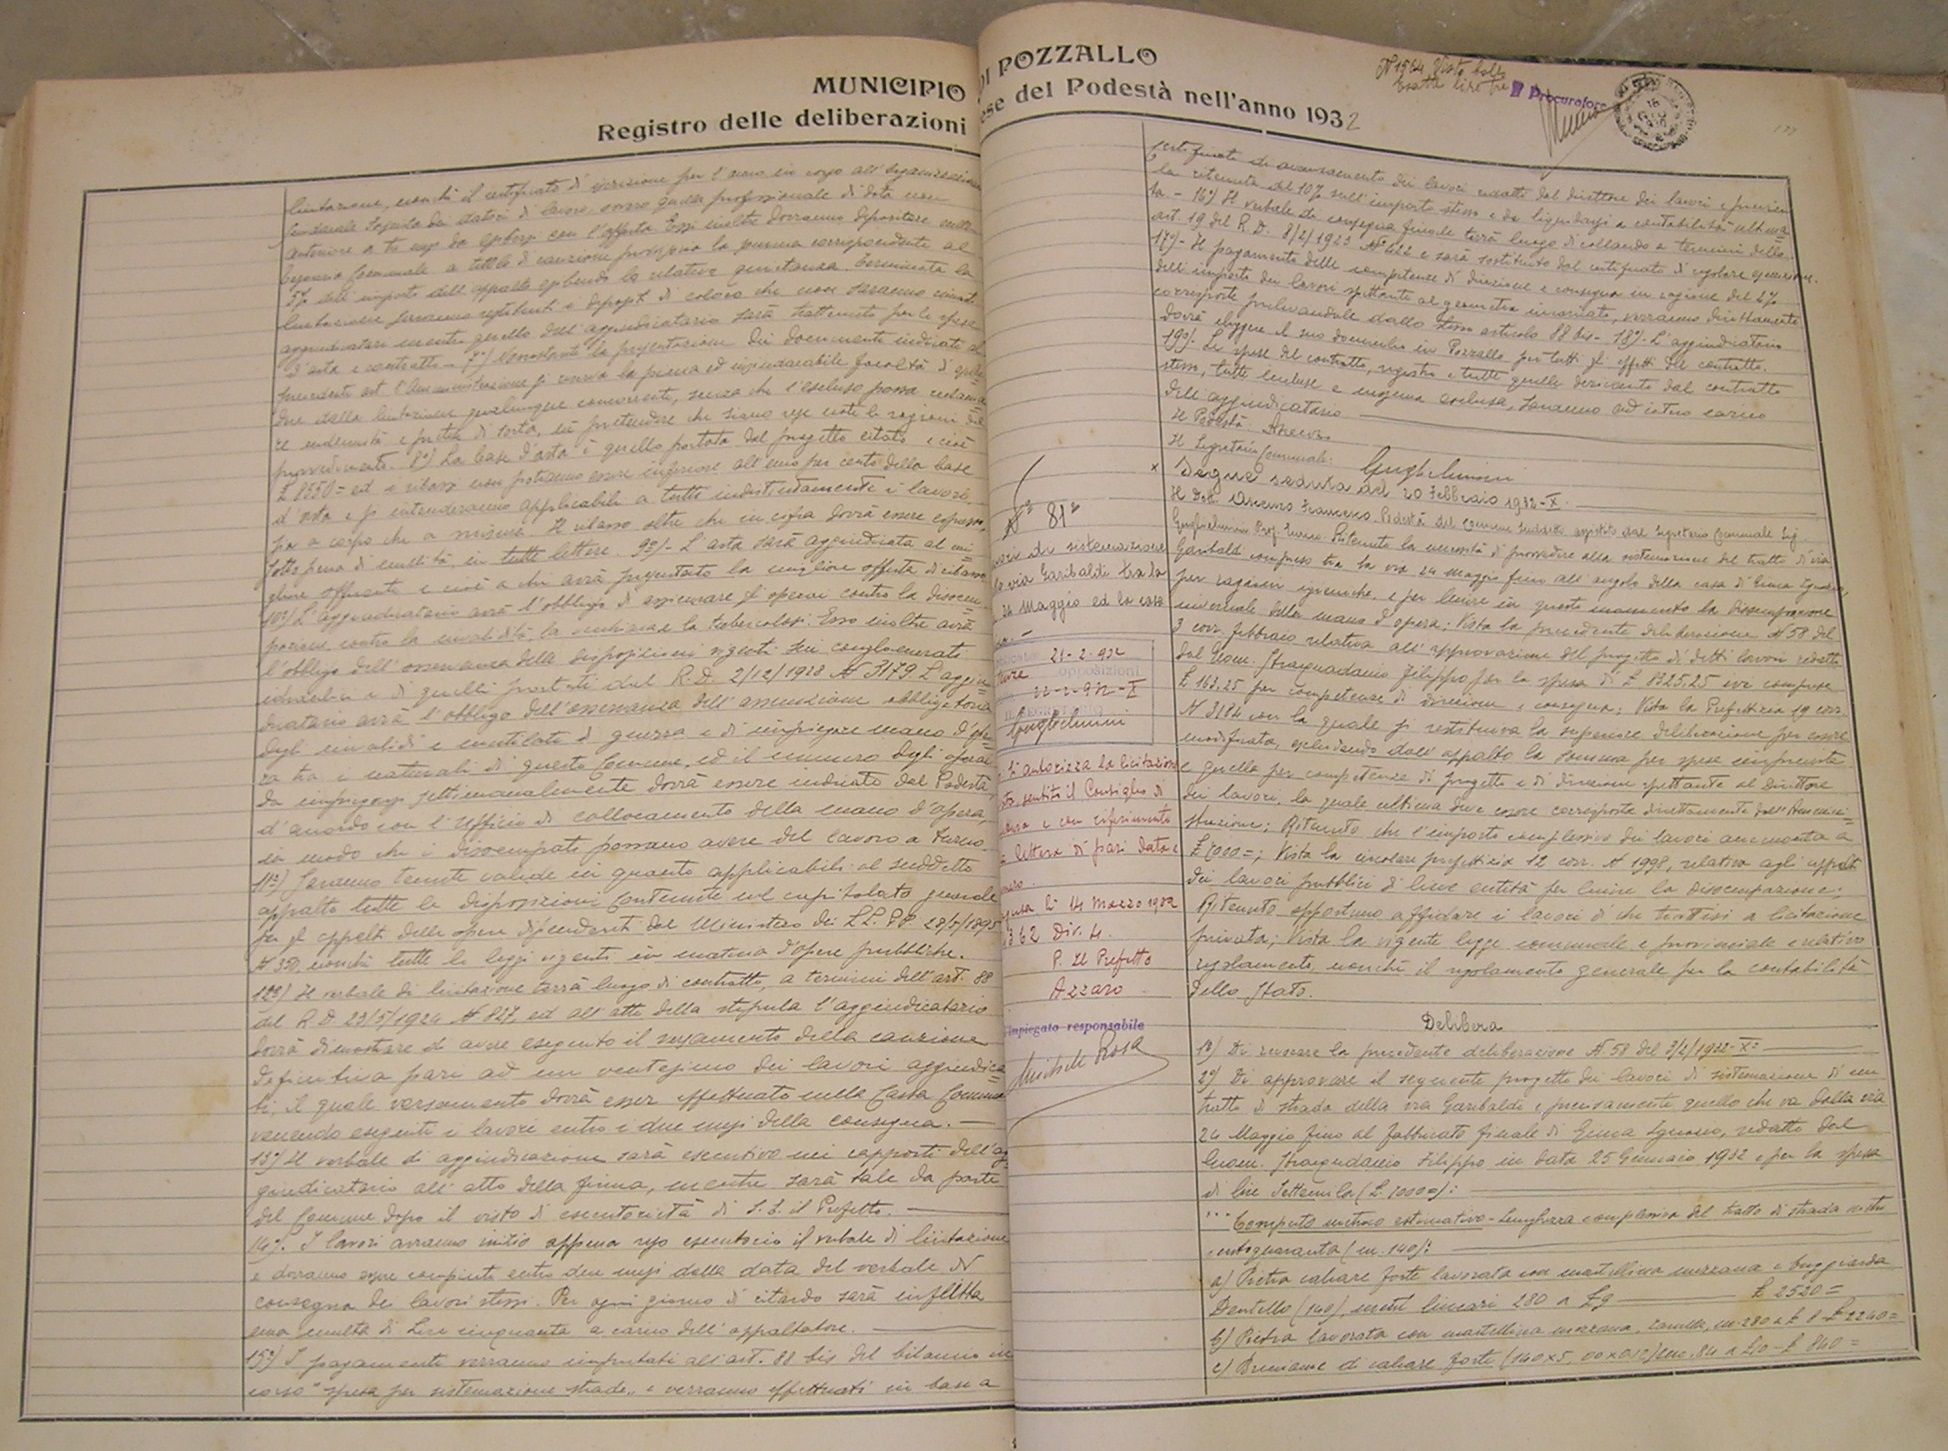 MUNICIPIO DI POZZALLO
Registro delle deliberazioni ese del Podestà nell'anno 1932
N 1564 Visto bollo
esatta lire tre
Il Procuratore
licitazione, nonchè il certificato d'iscrizione per l'anno in corso all'organizzazione
sindacale legale dei datori di lavoro, ovvero quella professionale di data non
anteriore a tre mesi da esibirsi con l'offerta. Essi inoltre dovranno depositare nella
Tesoreria Comunale a titolo di cauzione provvisoria la somma corrispondente al
5% dell'importo dell'appalto esibendo la relativa quietanza. Terminata la
licitazione saranno restituiti i depositi di coloro che non saranno rimasti
aggiudicatari mentre quello dell'aggiudicatario sarà trattenuto per le spese
d'asta e contratto. - 7°) Nonostante la presentazione dei documenti indicati al
precedente art. l'Amministrazione si riserva la piena ed insindacabile facoltà di esclu=
dere dalla licitazione qualunque concorrente, senza che l'escluso possa reclama=
re indennità e pretese di sorta, nè pretendere che siano rese note le ragioni del
provvedimento. 8°) La base d'asta è quello portata dal progetto citato e cioè
£ 8550= ed i ribassi non potranno essere inferiore all'uno per cento della base
d'asta e si intenderanno applicabili a tutti indistintamente i lavori
sia a corpo che a misura. Il ribasso oltre che in cifra dovrà essere espresso
sotto pena di nullità, in tutte lettere. 9°) - L'asta sarà aggiudicata al mi=
gliore offerente e cioè a chi avrà presentato la migliore offerta di ribasso
10°) L'aggiudicatario avrà l'obbligo di assicurare gli operai contro la disoccu=
pazione contro la invalidità la vecchiaia e la tubercolosi. Esso inoltre avrà
l'obbligo dell'osservanza delle disposizioni vigenti sui conglomerati
idraulici e di quelli portati dal R.D. 2/12/1928 N 3179. L'aggiu=
dicatario avrà l'obbligo dell'osservanza dell'assunzione obbligatoria
degli invalidi e mutilati di guerra e di impiegare mano d'ope=
ra tra i naturali di questo Comune, ed il numero degli operai
da impiegarsi settimanalmente dovrà essere indicato dal Podestà,
d'accordo con l'Ufficio di collocamento della mano d'opera
in modo che i disoccupati possano avere del lavoro a turno.
11°) Saranno tenute valide in quanto applicabili al suddetto
appalto tutte le disposizioni contenute nel capitolato generale
per gli appalti delle opere dipendenti dal Ministero dei LL. PP. 28/5/1895
N 350, nonchè tutte le leggi vigenti in materia d'opere pubbliche.
12°) Il verbale di licitazione terrà luogo di contratto, a termini dell'art. 88
del R.D. 23/5/1924 N 827, ed all'atto della stipula l'aggiudicatario
dovrà dimostrare di avere eseguito il versamento della cauzione
definitiva pari ad un ventesimo dei lavori aggiudica=
ti, il quale versamento dovrà esser effettuato nella Cassa Comunale
venendo eseguiti i lavori entro i due mesi della consegna. -
13°) Il verbale di aggiudicazione sarà esecutivo nei rapporti dell'ag=
giudicatario all'atto della firma, mentre sarà tale da parte
del Comune dopo il visto di esecutorietà di S.E. il Prefetto.
14°. I lavori avranno inizio appena reso esecutorio il verbale di licitazione
e dovranno essere compiuti entro due mesi dalla data del verbale di
consegna dei lavori stessi. Per ogni giorno di ritardo sarà inflitta
una multa di lire cinquanta a carico dell'appaltatore.
15°) I pagamenti verranno imputati all'art. 88 bis del bilancio in
corso "spesa per sistemazione strade" e verranno effettuati in base a
certificati di avanzamento dei lavori redatti dal direttore dei lavori e previa
la ritenuta del 10% sull'importo stesso e da liquidarsi a contabilità ultima=
ta - 16°) Il verbale di consegna finale terrà luogo di collaudo a termini dello
art. 19 del R.D. 8/2/1923 N 422 e sarà sostituito dal certificato di regolare esecuzione.
17°) - Il pagamento delle competenze di direzione e consegna in ragione del 2%
dell'importo dei lavori spettante al geometra incaricato, verranno direttamente
corrisposte prelevandole dallo stesso articolo 88 bis - 18°) - L'aggiudicatario
dovrà eleggere il suo domicilio in Pozzallo per tutti gli effetti del contratto.
19°) - Le spese del contratto, registro e tutte quelle derivante dal contratto
stesso, tutte incluse e nessuna esclusa, saranno ad intero carico
dell'aggiudicatario.
Il Podestà:
Il Segretario Comunale: Guglielmini
x Segue seduta del 20 Febbraio 1932-X.
N° 81
Lavori di sistemazione
della via Garibaldi tra la
24 Maggio ed la casa
21-2-932
opposizioni
22-2-932-X
Guglielmini
Si autorizza la licitazione
privata sentito il Consiglio di
Prefettura e con riferimento
a lettera di pari data e
numero.
Ragusa lì 14 Marzo 1932
N 362 Div. 4.
P. Il Prefetto
Azzaro
L'impiegato responsabile
Michele Rosa
Il Dott. Francesco, Podestà del Comune suddetto assistito dal Segretario Comunale Sig.
Guglielmini Prof. Marco. Ritenuto la necessità di provvedere alla sistemazione del tratto di via
Garibaldi compreso tra la via 24 Maggio fino all'angolo della casa di Giuca Ignazio,
per ragioni igieniche, e per lenire in questo momento la disoccupazione
invernale della mano d'opera; Vista la precedente deliberazione N 58 del
3 corr. febbraio relativa all'approvazione del progetto di detti lavori redatto
dal Geom. Stracquadanio Filippo per la spesa di £ 8325,25 ivi comprese
£ 163,25 per competenze di direzione e consegna; Vista la Prefettizia 19 corr.
N 3184 con la quale si restituiva la superiore deliberazione per essere
modificata, escludendo dall'appalto la somma per spese impreviste
e quella per competenze di progetto e di direzione spettante al direttore
dei lavori, la quale ultima deve essere corrisposta direttamente dall'Ammini=
strazione; Ritenuto che l'importo complessivo dei lavori ammonta a
£ 7000=; Vista la circolare prefettizia 12 corr. N 1998, relativa agli appalti
dei lavori pubblici di lieve entità per lenire la disoccupazione;
Ritenuto opportuno affidare i lavori di che trattasi a licitazione
privata; Vista la vigente legge comunale e provinciale e relativo
regolamento, nonchè il regolamento generale per la contabilità
dello Stato.
Delibera
1°) Di revocare la precedente deliberazione N. 58 del 3/2/1932-X=
2°) Di approvare il seguente progetto dei lavori di sistemazione di un
tratto di strada della via Garibaldi e precisamente quello che va dalla via
24 Maggio fino al fabbricato finale di Giuca Ignazio, redatto dal
Geom. Stracquadanio Filippo in data 25 Gennaio 1932 e per la spesa
di lire Settemila (£. 7000=):
"Computo metrico estimativo - Lunghezza complessiva del tratto di strada metri
centoquaranta (m. 140):
a) Pietra calcare forte lavorata con martellina mezzana e bugiarda
Dentello (140), metri lineari 280 a £9 £ 2520=
b) Pietra lavorata con martellina mezzana, zanella, m. 280 a £ 8 £ 2240=
c) Brecciame di calcare forte (140x5,00x0,12) mc. 84 a £10 - £ 840=